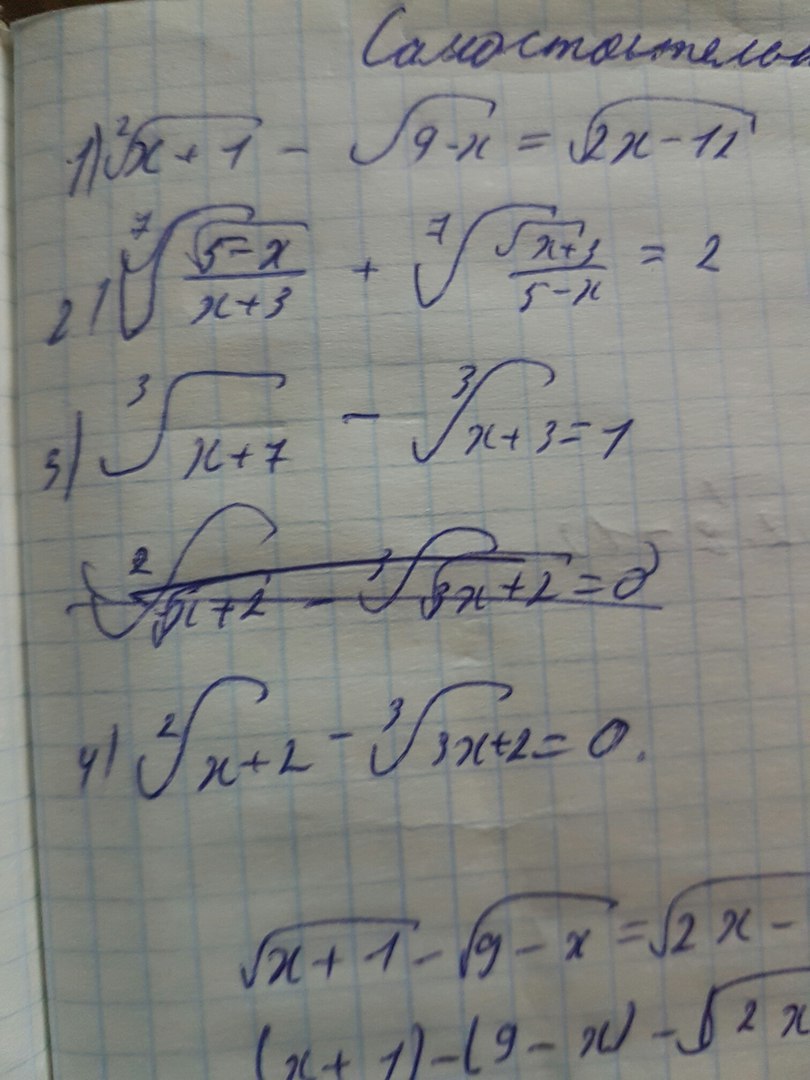 Самостоятельн
1) ²√x+1 - √9-x = √2x-12
2) ⁷√(√5-x/x+3) + ⁷√(√x+3/5-x) = 2
3) ³√x+7 - ³√x+3=1
²√x+2 - ³√3x+2=0
4) ²√x+2 - ³√3x+2=0.
√x+1 - √9-x = √2x-
(x+1)-(9-x)-√2x